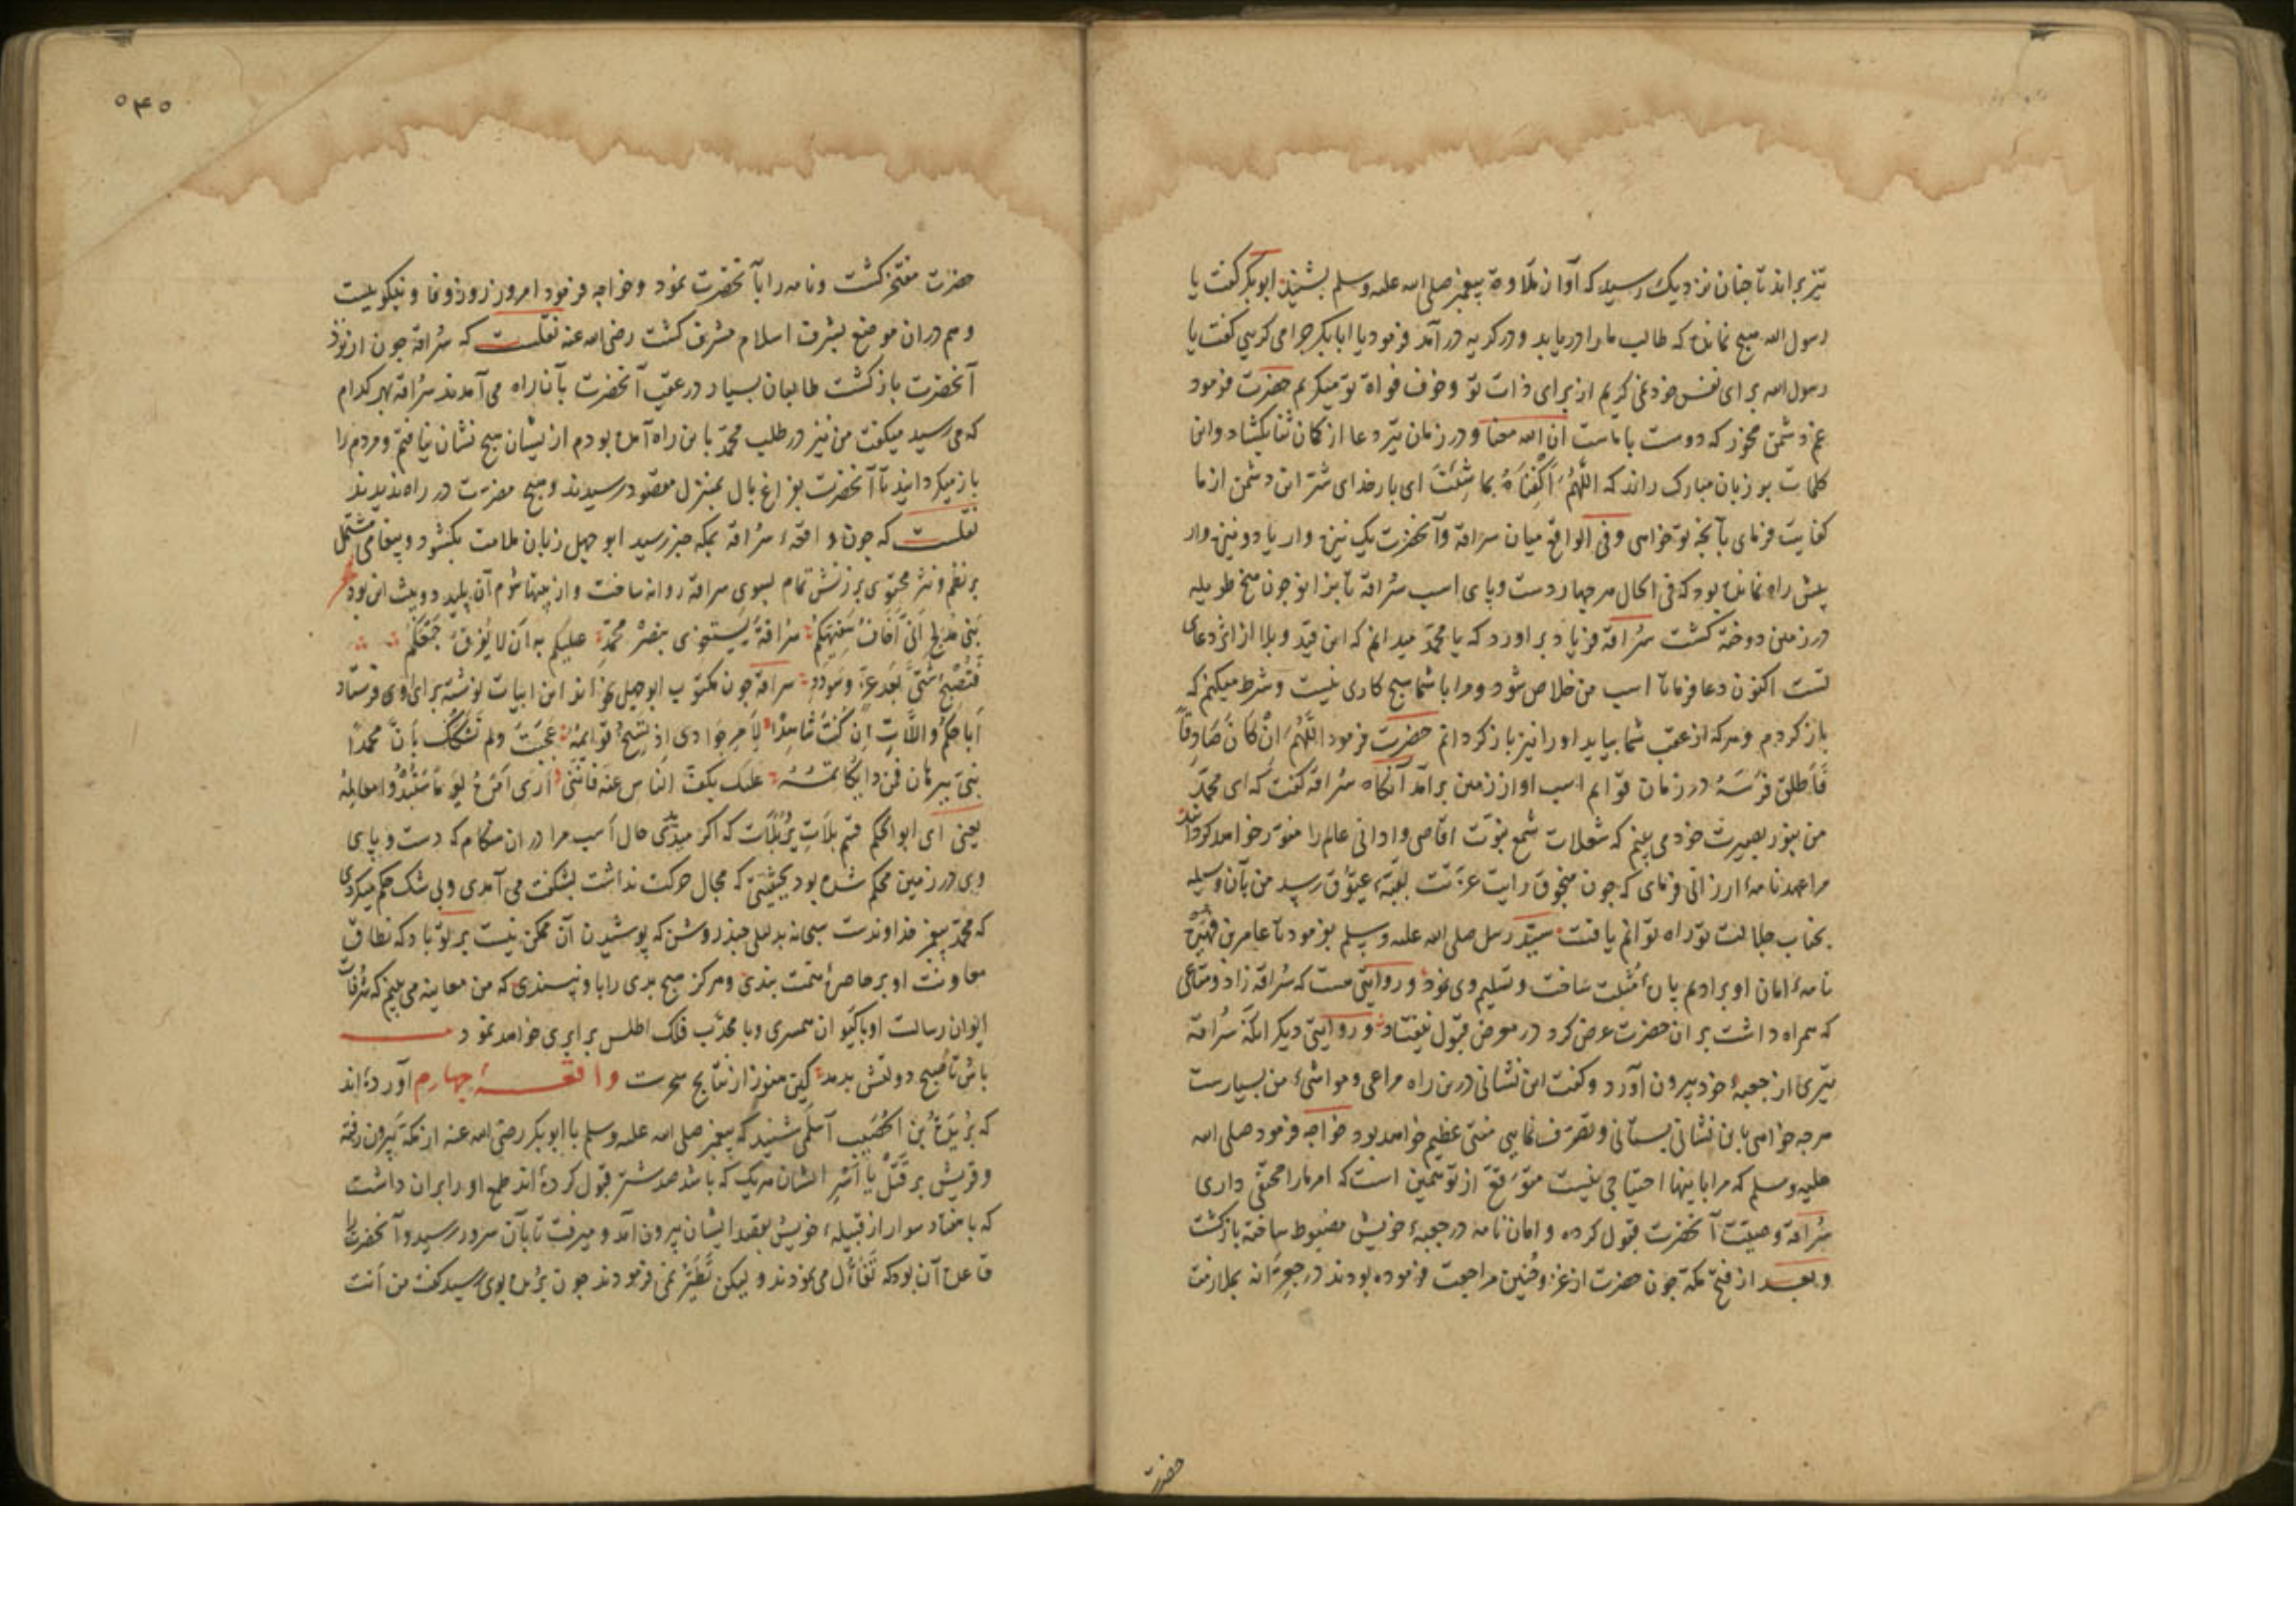 تیز براند تا چنان نزدیک رسید که آواز تلاوة پیغمبر صلی الله علیه وسلم بشنید ابوبکر گفت یا
رسول الله هیچ نمانده که طالب ما را دریابد و در گریه در آمد فرمود یا ابابکر چرا می گریی گفت یا
رسول الله برای نفس خود نمی گریم از برای ذات تو و خوف تو میگریم حضرت فرمود
غم دشمن مخور که دوست با ماست ان الله معنا و در زمان تیر دعا از کمان ثنا بگشاد واین
کلمات بر زبان مبارک راند که اللَّهُمَّ اکْفِنَاهُ بِمَا شِئْتَ ای بار خدای شر این دشمن از ما
کفایت فرمای بآنچه تو خواهی وفی الواقع میان سراقة وآنحضرت یک نیزه وار یا دو نیزه وار
پیش راه نمانده بود که فی الحال هر چهار دست و پای اسب سُراقة تا بزانو چون میخ طویله
در زمین دوخته گشت سُراقة فریاد بر اورد که یا محمّد میدانم که این قید و بلا از اثر دعای
تست اکنون دعا فرما تا اسب من خلاص شود و مرا با شما هیچ کاری نیست و شرط میکنم که
باز گردم و هر که از عقب شما بیاید او را نیز باز گردانم حضرت فرمود اللَّهُمَّ اِنْ کَانَ صَادِقًا
فَأَطلِق فَرَسَهُ در زمان قوایم اسب او از زمین برآمد آنگاه سُراقة گفت که ای محمّد
من بنور بصیرت خود می بینم که شعلات شمع نبوّت اقاصی و ادانی عالم را منوّر خواهد گردانید
مرا عهدنامهٔ ارزانی فرمای که چون منجوق رایت عزّتت بقبّهٔ عیّوق رسد من بآن وسیله
بجناب جلالت تو راه توانم یافت سیّد رسل صلی الله علیه وسلم بفرمود تا عامر بن فهیره
نامهٔ امان او بر ادیم پارهٔ مثبت ساخت و تسلیم وی نمود و روایتی هست که سُراقة زاد و متاعی
که همراه داشت بر ان حضرت عرض کرد در معرض قبول نیفتاد و روایتی دیگر انکه سُراقة
تیری از جعبهٔ خود بیرون آورد و گفت این نشانی درین راه مراعی و مواشیء من بسیارست
هر چه خواهی باین نشانی بستانی و تصرّف نمایی منتی عظیم خواهد بود خواجه فرمود صلی الله
علیه وسلم که مرا باینها احتیاجی نیست متوقع از تو همین است که امر ما را مخفی داری
سُراقة وصیّت آنحضرت قبول کرده و امان نامه در جعبهٔ خویش مضبوط ساخته بازگشت
و بعد از فتح مکّة چون حضرت از غزو حُنین مراجعت فرموده بودند در جعرّانه بملازمت
حضرت
٥٤٥
حضرت مفتخر گشت و نامه را با آنحضرت نمود و خواجه فرمود امروز روز وفا و نیکوییست
و هم در ان موضع بشرف اسلام مشرف گشت رضی الله عنه نقلست که سُراقة چون از نزد
آنحضرت بازگشت طالبان بسیار در عقب آنحضرت بآن راه می آمدند سُراقة بهر کدام
که می رسید میگفت من نیز در طلب محمّد باین راه آمده بودم از ایشان هیچ نشان نیافتم و مردم را
باز میگردانید تا آنحضرت بفراغ بال بمنزل مقصود رسیدند و هیچ مضرّت در راه ندیدند
نقلست که چون واقعهٔ سُراقة بمکه خبر رسید ابوجهل زبان ملامت بگشود و پیغامی مشتمل
بر نظم و نثر محتوی بر سرزنش تمام بسوی سراقة روانه ساخت و از بیتهاء شوم آن پلید دو بیت این بود
بَنِی مُدْلِجٍ اِنِّی اَخَافُ سَفِیهَکُمْ سُراقَةُ یَسْتَغْوِی بِنَصْرِ مُحَمَّدٍ عَلَیکُم بِهِ اَن لا یُفَرِّقَ جَمْعَکُم
فَتُصْبِحَ شَتَّی بَعْدَ عِزٍّ وَسُودَدِ سراقة چون مکتوب ابوجهل بخواند این ابیات نوشته برای وی فرستاد
اَبَا حَکَمٍ وَاللَّاتِ اِن کُنْتَ شَاهِدًا لِاَمرِ جَوَادِی اِذ تَسِیخُ قَوَائِمُهُ عَجِبْتَ وَلَم تَشْکُک بِاَنَّ مُحَمَّدًا
نبیّ ببرهان فمن ذا یکاتمه علیک بکفّ الناس عنه فانّنی اَرَی اَمرَهُ یومًا ستبدو معالمه
یعنی ای ابوالحکم قسم بلات که اگر میدیدی حال اسب مرا در ان هنگام که دست و پای
وی در زمین محکم شده بود بحیثیتی که مجال حرکت نداشت بشگفت می آمدی و بی شک حکم میکردی
که محمّد پیغمبر خداوندست سبحانه بدلیلی چند روشن که پوشیدن آن ممکن نیست بر تو باد که نطاق
معاونت او بر خاصرهٔ همّت بندی و هرگز هیچ بدی را با و نپسندی که من معاینه می بینم که شرفات
ایوان رسالت او با کیوان همسری و با محدّب فلک اطلس برابری خواهد نمود
باش تا صبح دولتش بدمد کین هنوز از نتایج سحرست واقعهٔ چهارم آورده اند
که بُرَیدَةُ بن الحُصَیب اَسلَمی شنید که پیغمبر صلی الله علیه وسلم با ابوبکر رضی الله عنه از مکّه بیرون رفته
و قریش بر قتل یا اَسْرِ ایشان هر یک که باشد صد شتر قبول کرده اند طمع او را بران داشت
که با هفتاد سوار از قبیلهٔ خویش بقصد ایشان بیرون آمد و میرفت تا بآن سرور رسید و آنحضرت را
قاعده آن بود که تَفَأُّل می نمودند و لیکن تَطَیُّر نمی فرمودند چون بُریده بوی رسید گفت من اَنت